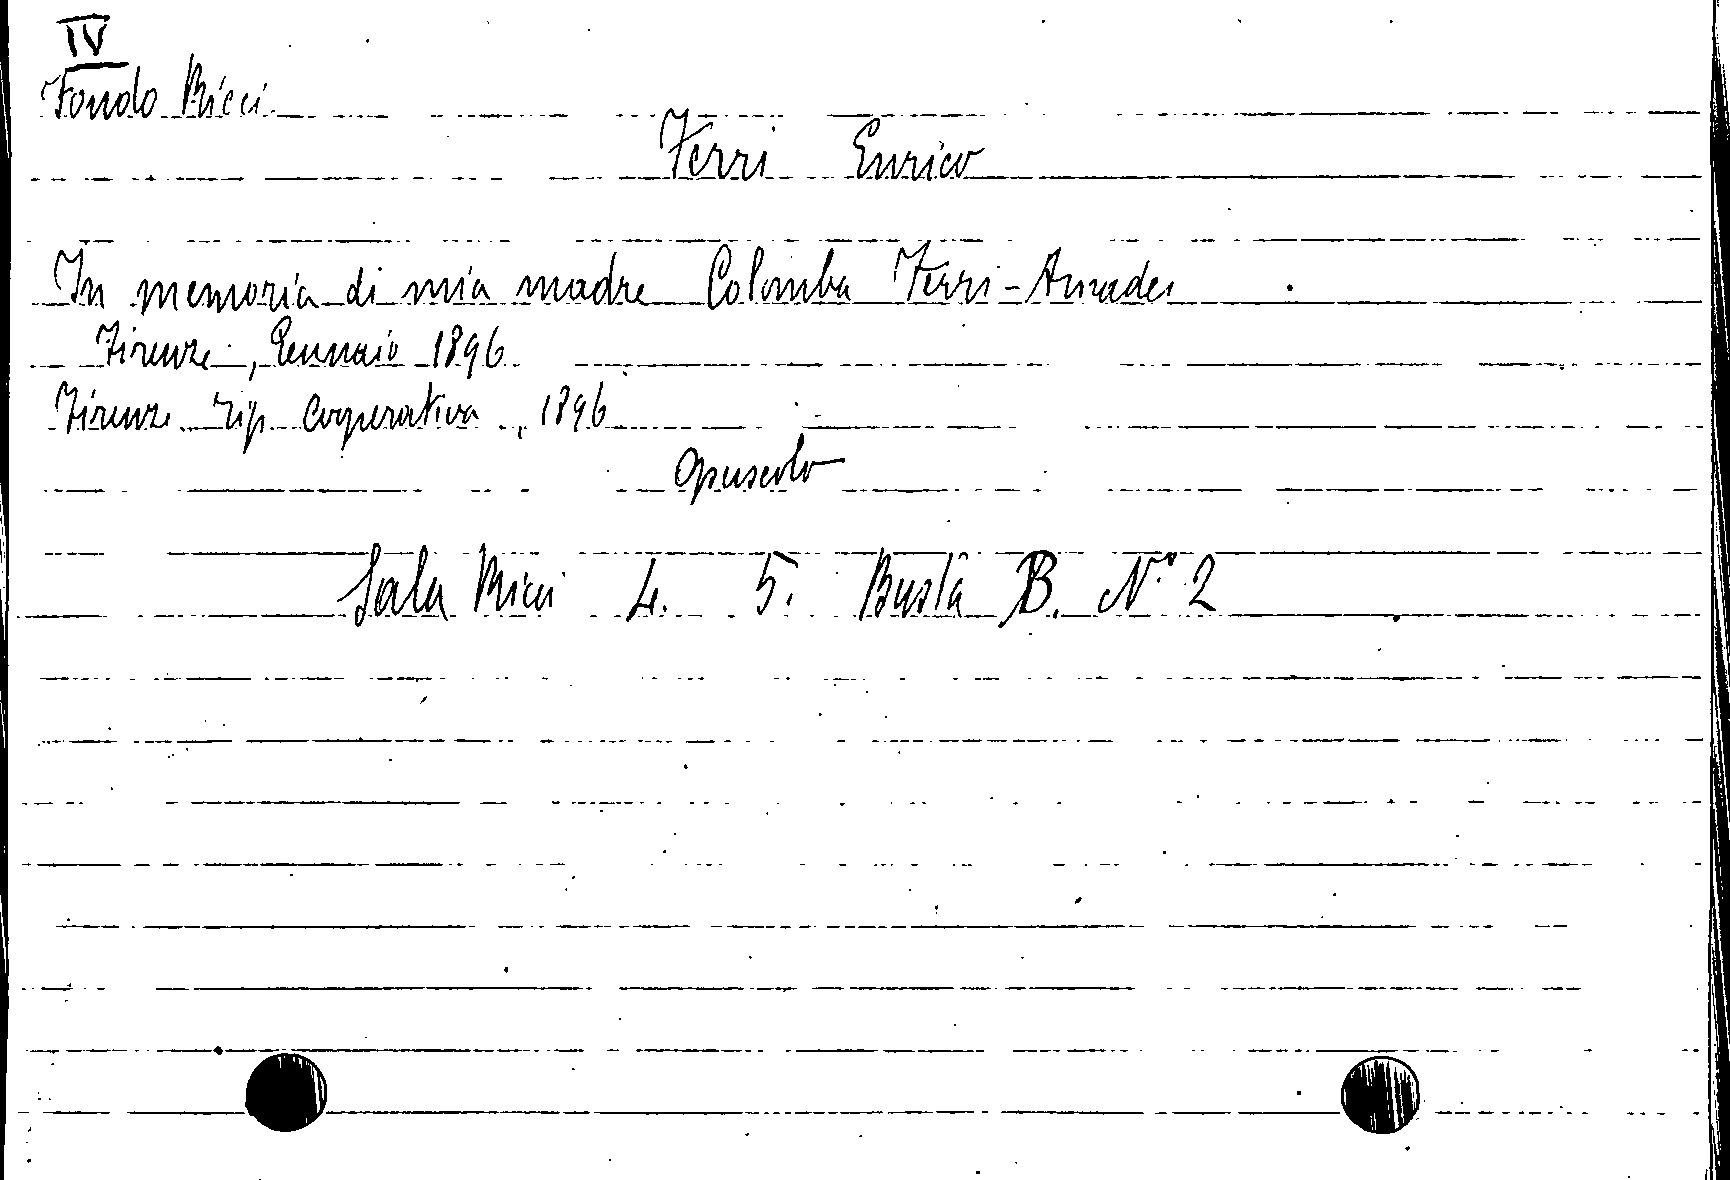 IV
Fondo Ricci
Ferri Enrico
In memoria di mia madre Colomba Ferri-Amadei
Firenze, Gennaio 1896
Firenze Tip. Cooperativa, 1896
Opuscolo
Sala Ricci 4. 5. Busta B. N.° 2